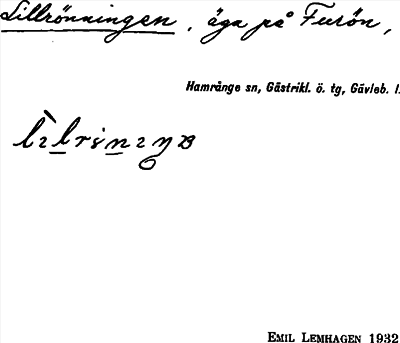 Lillrönningen, äga på Furön,
Hamrånge sn, Gästrikl. ö. tg, Gävleb. l.
EMIL LEMHAGEN 1932